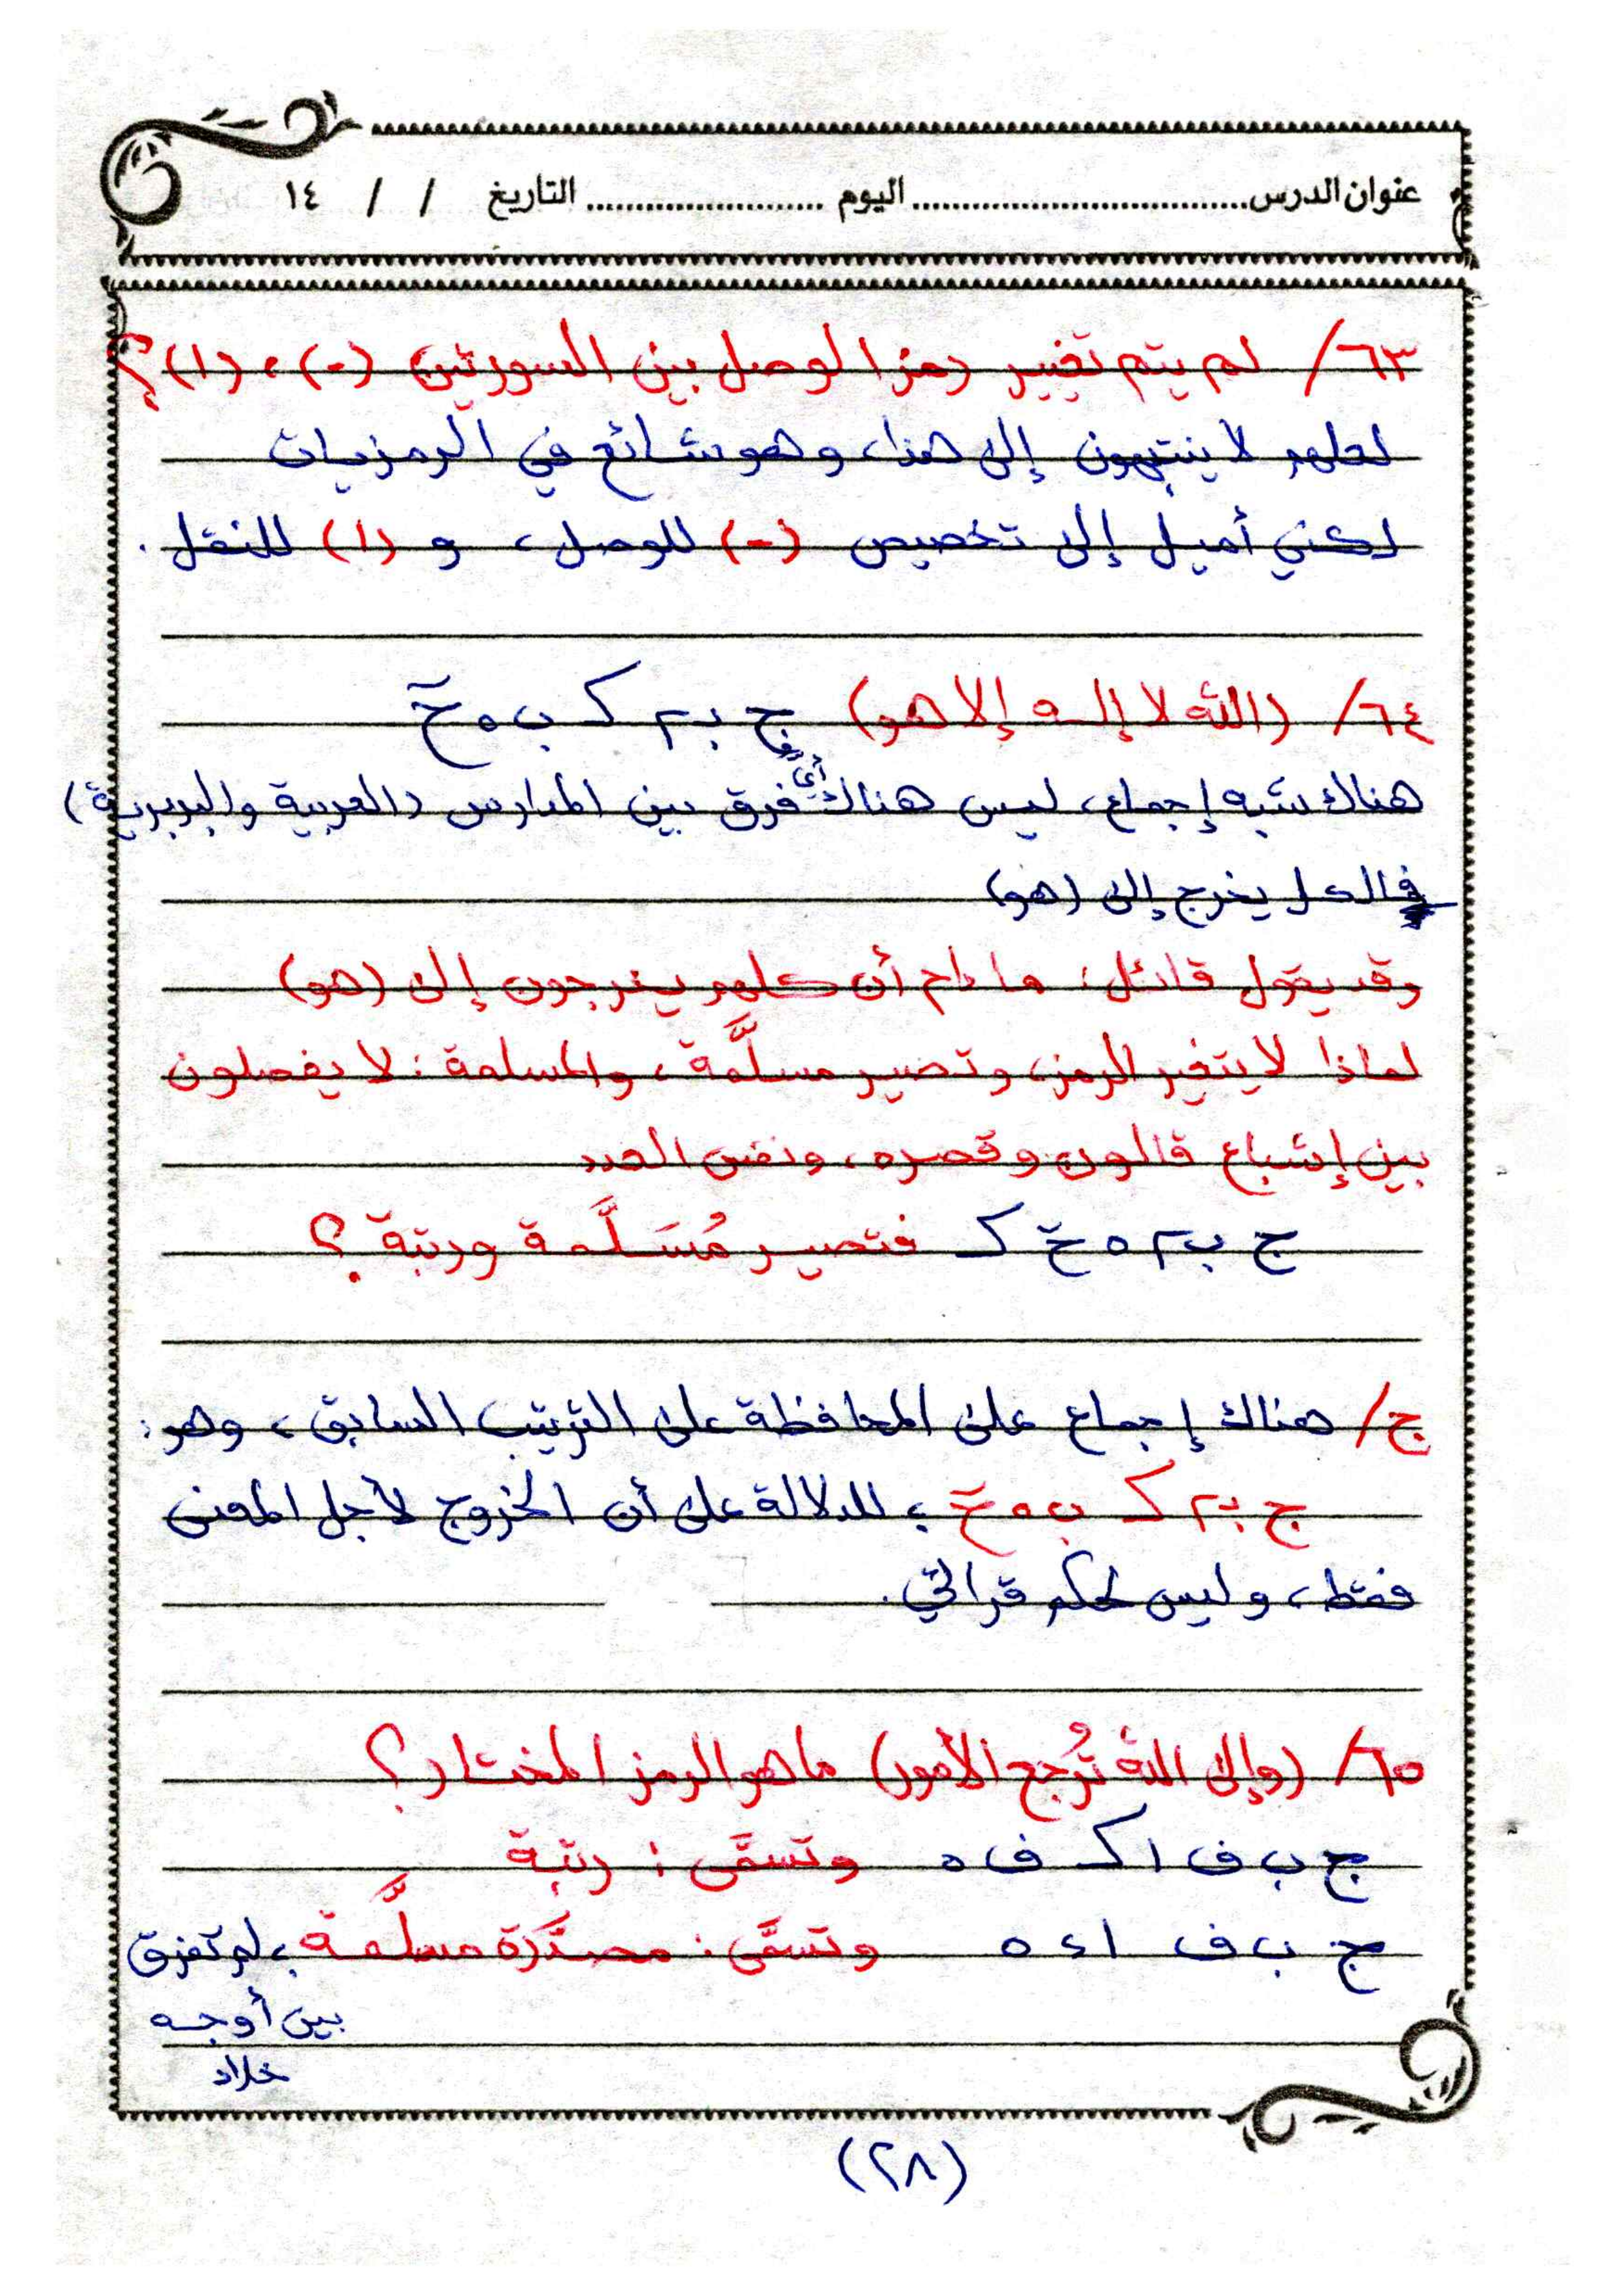 عنوان الدرس................................اليوم ........................ التاريخ / / ١٤
٦٣/ لم يتم تغيير رمز الوصل بين السورتين (-) ، (ا)؟
لعلهم لا ينتبهون إلى هذا، وهو شائع في الرمزيات
لكني أميل إلى تخصيص (-) للوصل، و (ا) للنقل.
٦٤/ (الله لا إله إلا هو) ج بـ م كـ ب ه حٓ
هناك شبه إجماع، ليس هناك أيُّ فرق بين المدارس (العربية والبربرية)
فالكل يخرج إلى (هو)
وقد يقول قائل: ما دام أن كلهم يخرجون إلى (هو)
لماذا لا يتغير الرمز، وتصير مسلَّمة، والمسلمة: لا يفصلون
بين إشباع قالون وقصره، ونفس العدد
ج ب م ه حٓ كـ فتصير مُسَلَّمة ورتبة؟
ج/ هناك إجماع على المحافظة على الترتيب السابق، وهو:
ج بـ م كـ ب ه حٓ ؛ للدلالة على أن الخروج لأجل المعنى
فقط، وليس لحكم قرائي.
٦٥/ (وإلى الله تُرجع الأمور) ما هو الرمز المختار؟
ج ب ف ا كـ ف ه وتسمَّى: رتبة
ج ب ف ا ء ه وتسمَّى: مصدَّرة مسلَّمة ؛ لم تفرق
بين أوجه
خلاد
(٢٨)